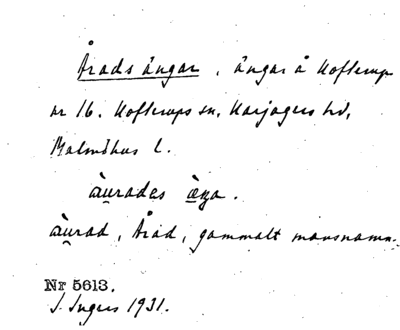 Årads ängar, ängar å Hofterup
nr 16. Hofterups sn, Harjagers hd,
Malmöhus l.
àu̯rades æ̀ŋa.
àu̯rad, Åräd, gammalt mansnamn.
Nr 5613.
J. Ingers 1931.